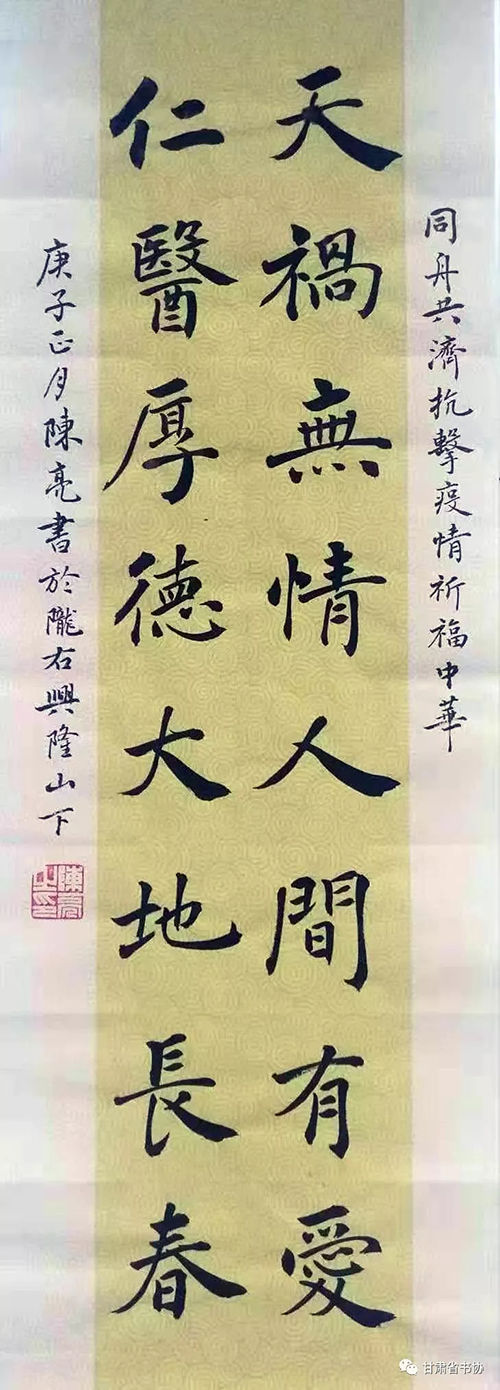 同舟共濟抗擊疫情祈福中華
天禍無情人間有愛
仁醫厚德大地長春
庚子正月陳亮書於隴右興隆山下
陳亮之印
甘肃省书协